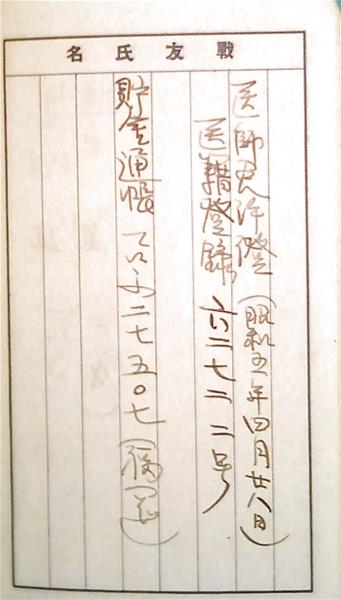 戰友氏名
医師免許證(昭和五年四月廿八日)
医籍登録六二七二二号
貯金通帳 二七五〇七